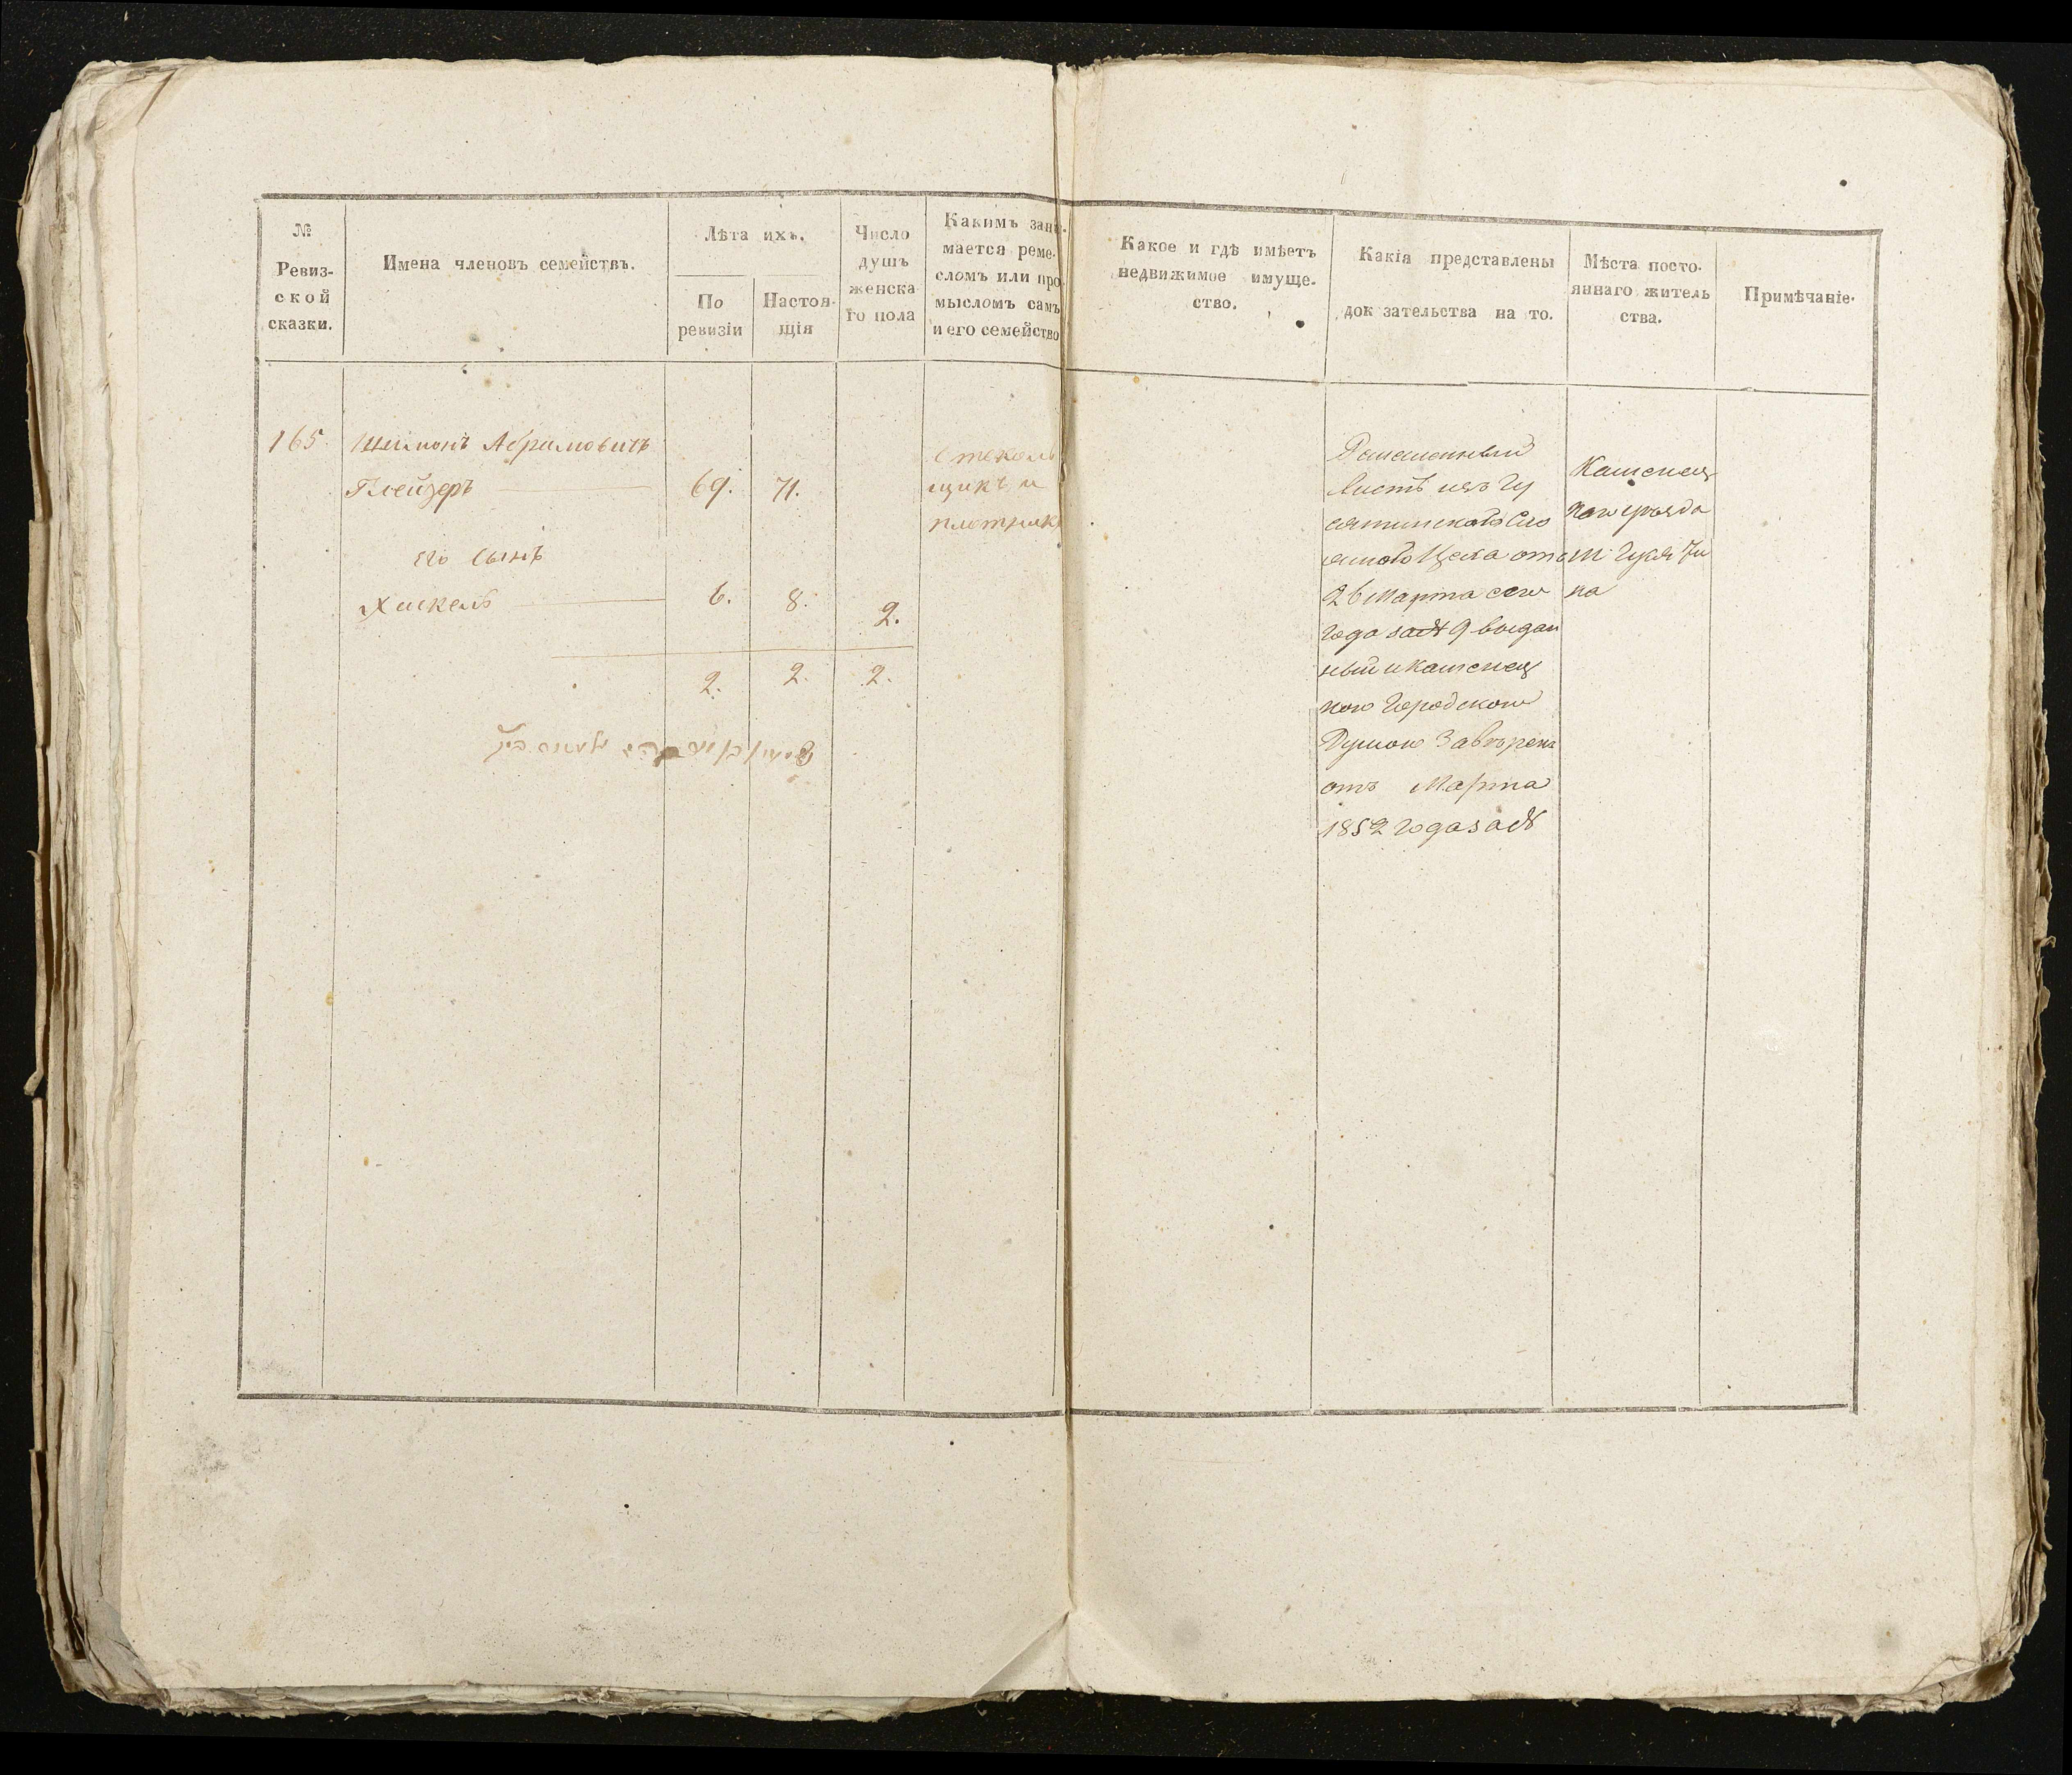 №
Ревиз-
ской
сказки.
Имена членовъ семействъ.
Лѣта ихъ.
По
ревизіи
Настоя-
щія
Число
душъ
женска
го пола
Какимъ зани-
мается реме-
сломъ или про
мысломъ самъ
и его семейство
Какое и гдѣ имѣетъ
недвижимое имуще-
ство.
Какія представлены
док зательства на то.
Мѣста посто-
яннаго житель
ства.
Примѣчаніе.
165. Шимонъ Абрамовичъ
Глейзеръ 69. 71.
его сынъ
Хаскель 6. 8. 2.
2. 2. 2.
Стеколь
щикъ и
плотникъ
листъ изъ Гу
сятинскаго
Цеха отъ
26 Марта сего
года за № 9 выдан
ный и Каменец
кою Городскою
Думою Завѣренъ
отъ Марта
1852 года за №
Каменец
каго уѣзда